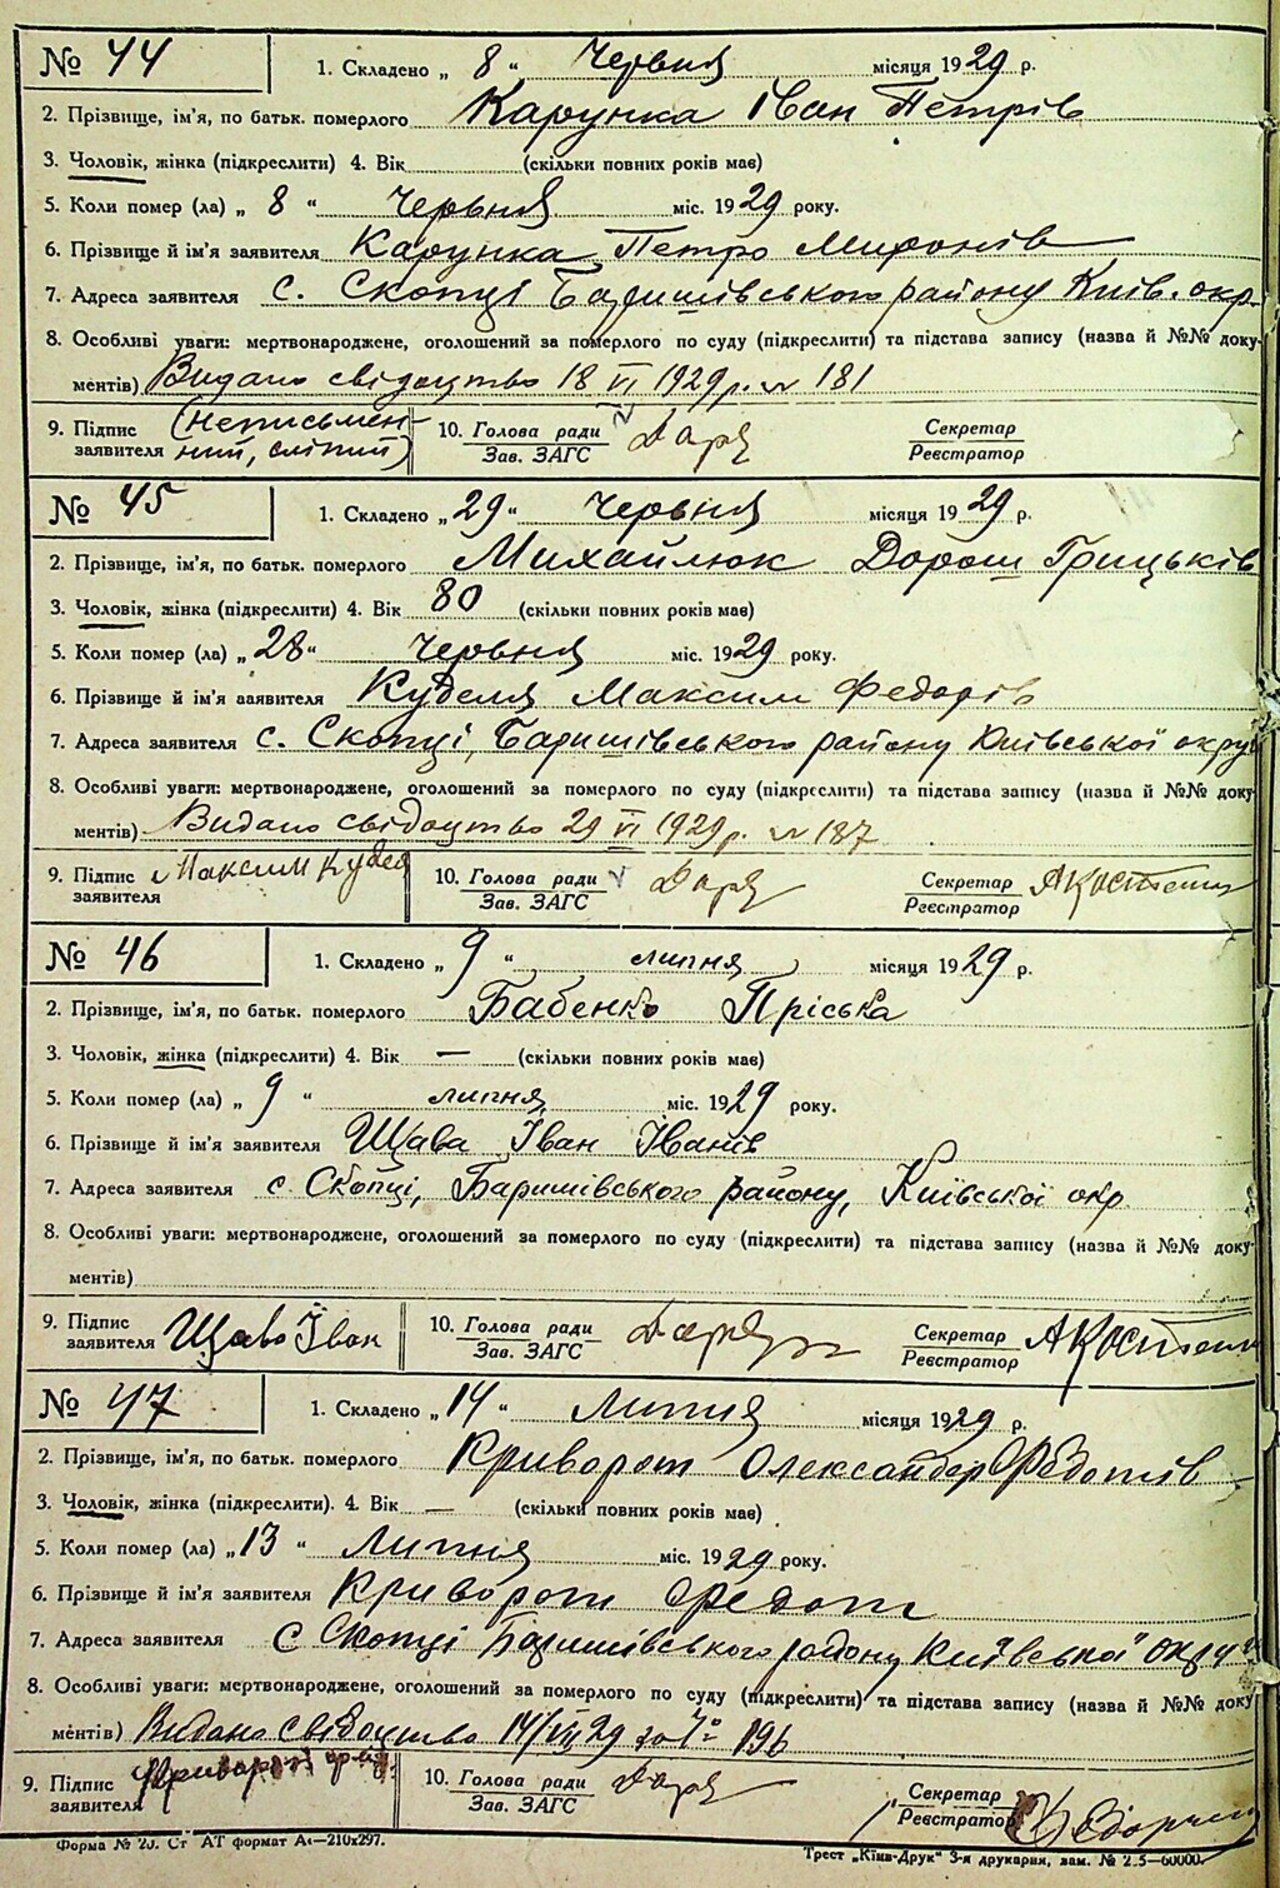 № 44 1. Складено „ 8 “ Червня місяця 1929 р.
2. Прізвище, ім'я, по батьк. померлого Карунка Іван Петрів
3. Чоловік, жінка (підкреслити) 4. Вік (скільки повних років має)
5. Коли помер (ла) „ 8 “ Червня міс. 1929 року.
6. Прізвище й ім'я заявителя Карунка Петро Миронів
7. Адреса заявителя с. Скопці Баришівського району Київ. окр.
8. Особливі уваги: мертвонароджене, оголошений за померлого по суду (підкреслити) та підстава запису (назва й №№ доку-
ментів) Видано свідоцтво 18 VI 1929 р. № 181
9. Підпис (неписьмен- 10. Голова ради Секретар
заявителя ний, сліпий) Зав. ЗАГС Реєстратор
№ 45 1. Складено „29“ Червня місяця 1929 р.
2. Прізвище, ім'я, по батьк. померлого Михайлюк Дорош Грицьків
3. Чоловік, жінка (підкреслити) 4. Вік 80 (скільки повних років має)
5. Коли помер (ла) „28“ Червня міс. 1929 року.
6. Прізвище й ім'я заявителя Куделя Максим Федорів
7. Адреса заявителя с. Скопці, Баришівського району Київської округ
8. Особливі уваги: мертвонароджене, оголошений за померлого по суду (підкреслити) та підстава запису (назва й №№ доку-
ментів) Видано свідоцтво 29 VI 1929 р. № 187
9. Підпис Максим Кудел 10. Голова ради Секретар АКостенк
заявителя Зав. ЗАГС Реєстратор
№ 46 1. Складено „ 9 “ липня місяця 1929 р.
2. Прізвище, ім'я, по батьк. померлого Бабенко Пріська
3. Чоловік, жінка (підкреслити) 4. Вік — (скільки повних років має)
5. Коли помер (ла) „ 9 “ липня міс. 1929 року.
6. Прізвище й ім'я заявителя Щава Іван Іванів
7. Адреса заявителя с. Скопці, Баришівського району, Київської окр.
8. Особливі уваги: мертвонароджене, оголошений за померлого по суду (підкреслити) та підстава запису (назва й №№ доку-
ментів)
9. Підпис Щава Іван 10. Голова ради Секретар АКостенк
заявителя Зав. ЗАГС Реєстратор
№ 47 1. Складено „14“ Липня місяця 1929 р.
2. Прізвище, ім'я, по батьк. померлого Криворот Олександер Федотів
3. Чоловік, жінка (підкреслити). 4. Вік — (скільки повних років має)
5. Коли помер (ла) „13“ Липня міс. 1929 року.
6. Прізвище й ім'я заявителя Криворот Федот
7. Адреса заявителя с Скопці Баришівського району Київської округ
8. Особливі уваги: мертвонароджене, оголошений за померлого по суду (підкреслити) та підстава запису (назва й №№ доку
ментів) Видано свідоцтво 14/VII 29 за № 196
9. Підпис Криворот 10. Голова ради Секретар
заявителя Зав. ЗАГС Реєстратор
Форма № 20. Ст АТ формат А4—210x297.
Трест „Київ-Друк“ 3-я друкарня, зам. № 2.5—60000.